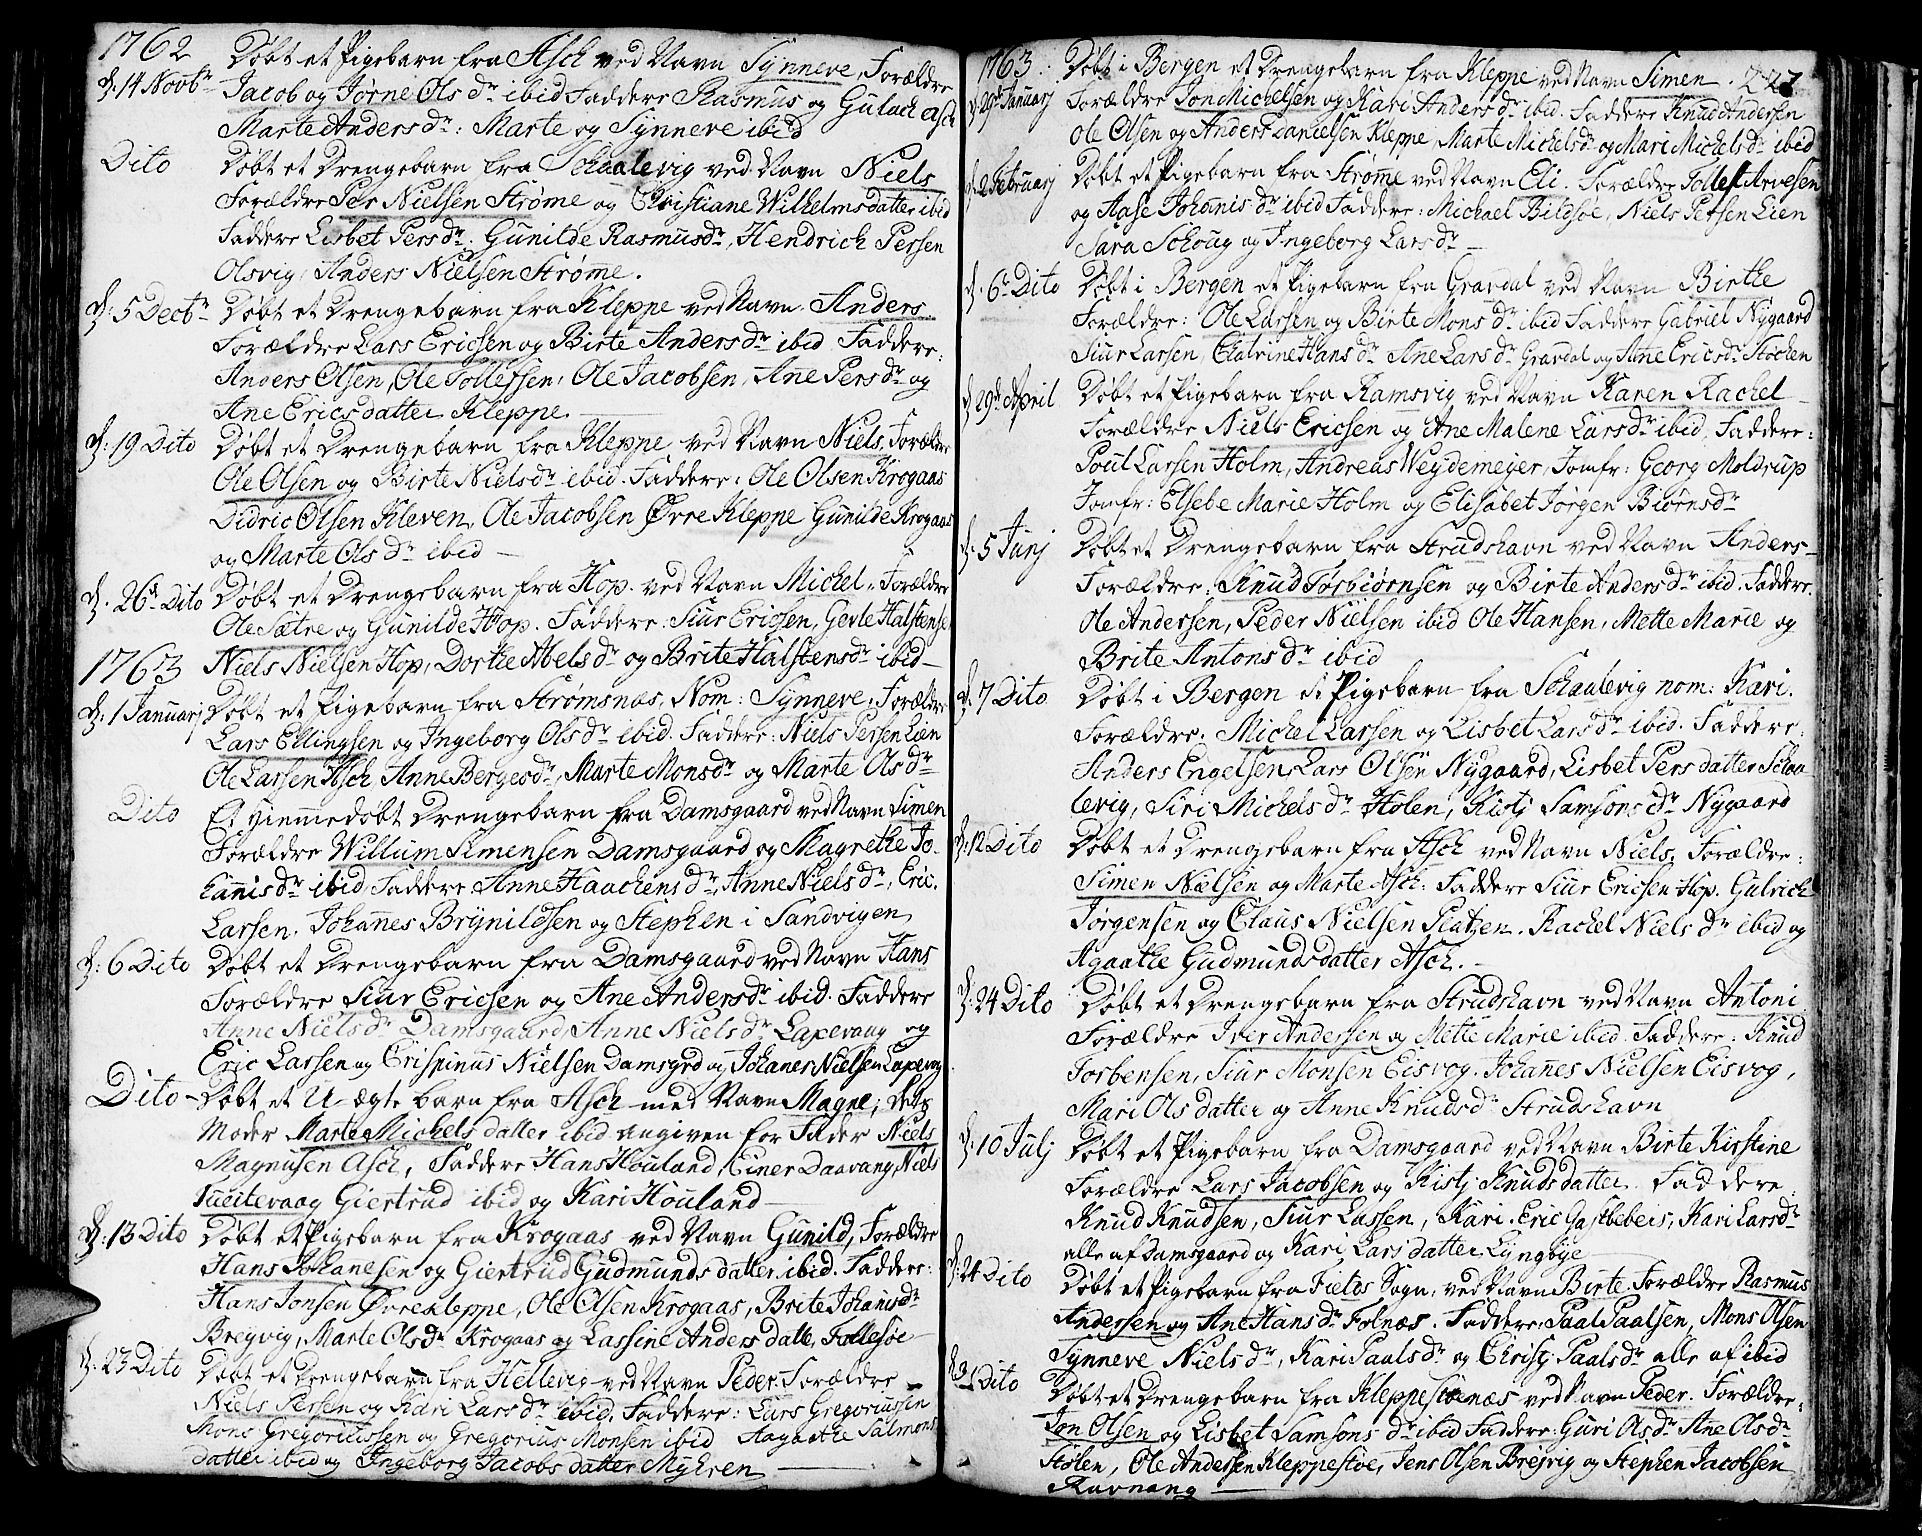 1762 Døbt et Pigebarn fra Asch ved Navn Synneve, Forældre
d. 14 Novbr Jacob og Jørne Ols dr ibid Faddere Rasmus og Gulach Asch
Marte Anders dr: Marte og Synneve ibid
Dito Døbt et Drengebarn fra Schaalevig ved Navn Niels
Forældre Per Nielsen Strøme og Christiane Wilhelmsdatter ibid
Faddere Lisbet Pers dr: Gunilde Rasmusdr, Hendrich Persen
Olsvig, Anders Nielsen Strøme.
d: 5 Decbr Døbt et Drengebarn fra Kleppe ved Navn Anders
Forældre Lars Ericsen og Birte Anders dr ibid Faddere:
Anders Olsen, Ole Tollefsen, Ole Jacobsen, Ane Pers dr og
Ane Ericsdatter Kleppe.
d: 19 Dito Døbt et Drengebarn fra Kleppe ved Navn Niels. Forældre
Ole Olsen og Birte Niels dr ibid. Faddere: Ole Olsen Krogaas
Didric Olsen Kleven, Ole Jacobsen Øvre Kleppe Gunilde Krogaas
og Marte Ols dr ibid —
d. 26d Dito Døbt et Drengebarn fra Hop. ved Navn Michel. Forældre
Ole Sætre og Gunilde Hop. Faddere Siur Ericsen, Gevle Halstense
1763 Niels Nielsen Hop, Dorthe Abels dr og Brite Halstensdr ibid —
d: 1 Januarj Døbt et Pigebarn fra Strømsnæs, Nom: Synneve, Forældre
Lars Ellingsen og Ingeborg Ols dr ibid. Faddere: Niels Persen Lien
Ole Larsen Asch, Anne Bergesdr, Marte Monsdr og Marte Ols dr
Dito Et Hiemmedøbt Drengebarn fra Damsgaard ved Navn Simen
Forældre Willum Simensen Damsgaard og Magrethe Jo-
hannis dr ibid Faddere Anne Haachens dr, Anne Niels dr, Eric.
Larsen, Johannes Brynildsen og Stephen i Sandvigen
d: 6 Dito Døbt et Drengebarn fra Damsgaard ved Navn Hans
Forældre Siur Ericsen og Ane Andersdr ibid. Faddere
Anne Niels dr Damsgaard, Anne Niels dr Laxevaag og
Eric Larsen og Crispinus Nielsen Damsgrd og Johanes Nielsen Laxevag
Dito — Døbt et U-ægte barn fra Asch med Navn Magne, dets
Moder Marte Michels datter ibid angiven for Fader Niels
Magnusen Asch, Faddere Hans Houland, Einer Daavang, Niels
Giertrud ibid og Kari Houland —
d: 13 Dito Døbt et Pigebarn fra Krogaas ved Navn Gunild, Forældre
Hans Johanesen og Giertrud Gudmunds datter ibid. Faddere:
Hans Jonsen Øvre Kleppe, Ole Olsen Krogaas, Brite Johanisdr
Bregvig, Marte Olsdr Krogaas og Lassine Anders datte, Follesøe
d: 23 Dito Døbt et Drengebarn fra Hellevig ved Navn Peder. Forældre
Niels Persen og Kari Lars dr ibid, Faddere: Lars Gregoriussen
Mons Gregoriussen og Gregorius Monsen ibid Aagaathe Salmons
datter ibid og Ingeborg Jacobs datter Myhren
1763 Døbt i Bergen et Drengebarn fra Kleppe ved Navn Simen. 227
d. 29d Januarj Forældre Jon Michelsen og Kari Anders dr ibid. Faddere Knud Andersen
Ole Olsen og Anders Danielsen Kleppe, Marte Michelsdr og Mari Michels dr ibid
d. 2 Februarj Døbt et Pigebarn fra Strøme ved Navn Eli. Forældre Tollef Arvesen
og Aase Johanis dr ibid Faddere: Michael Bildsøe, Niels Persen Lien
Sara Schoug og Ingeborg Lars dr —
d: 6te Dito Døbt i Bergen et Pigebarn fra Gravdal ved Navn Birthe
Forældre: Ole Larsen og Birte Mons dr ibid Faddere Gabriel Nygaard
Siur Larsen, Catrine Hans dr Ane Lars dr Gravdal og Ane Ericsdr Stochen
d 29d April Døbt et Pigebarn fra Ramsvig ved Navn Karen Rachel
Forældre Niels Ericsen og Ane Malene Lars dr ibid, Faddere:
Poul Larsen Holm, Andreas Weydemeyer, Jomfr: Georg Moldrup
Jomfr: Elsebe Marie Holm og Elisabet Jørgen Biørnsdr
d. 5 Junj Døbt et Drengebarn fra Strudshavn ved Navn Anders —
Forældre: Knud Torbiørnsen og Birte Anders dr ibid. Faddere.
Ole Andersen, Peder Nielsen ibid Ole Hansen, Mette Marie og
Brite Antons dr ibid
d. 7 Dito Døbt i Bergen et Pigebarn fra Schaalevig nom: Kari.
Forældre. Michel Larsen og Lisbet Lars dr ibid. Faddere:
Anders Engelsen, Lars Olsen Nygaard, Lisbet Pers datter Schaa-
levig, Siri Michels dr Holen, Kistj Samsons dr Nygaard
d: 12 Dito Døbt et Drengebarn fra Asch ved Navn Niels, Forældre:
Simen Nielsen og Marte Asch: Faddere Siur Ericsen Hop. Gulrich
Jørgensen og Claus Nielsen Platzen. Rachel Niels dr ibid og
Agaathe Gudmundsdatter Asch. —
d: 24 Dito Døbt et Drengebarn fra Strudshavn ved Navn Antoni
Forældre Iver Andersen og Mette Marie ibid. Faddere: Knud
Torbensen, Siur Monsen Eisvog. Johanes Nielsen Eisvog,
Mari Ols datter og Anne Knudsdr Strudshavn
d: 10 Julj Døbt et Pigebarn fra Damsgaard ved Navn Birte Kirstine
Forældre Lars Jacobsen og Kistj Knuds datter. Faddere:
Knud Knudsen, Siur Lassen, Kari. Eric Gastbebers, Kari Larsdr
alle af Damsgaard og Kari Lars datter Lyngbye —
d: 24 Dito Døbt et Pigebarn fra Fields Sogn, ved Navn Birte. Forældre Rasmus
Andersen og Ane Hans dr Folnæs. Faddere, Paal Paalsen, Mons Olsen
Synneve Niels dr, Kari Paals dr og Christj Paals dr alle af ibid
d 31 Dito Døbt et Drengebarn fra Kleppestønæs ved Navn Peder. Forældre:
Jon Olsen og Lisbet Samsons dr ibid Faddere: Guri Ols dr Ane Ols dr
Stølen, Ole Andersen Kleppestøe, Jens Olsen Brejvig og Stephen Jacobsen
Ravnang —